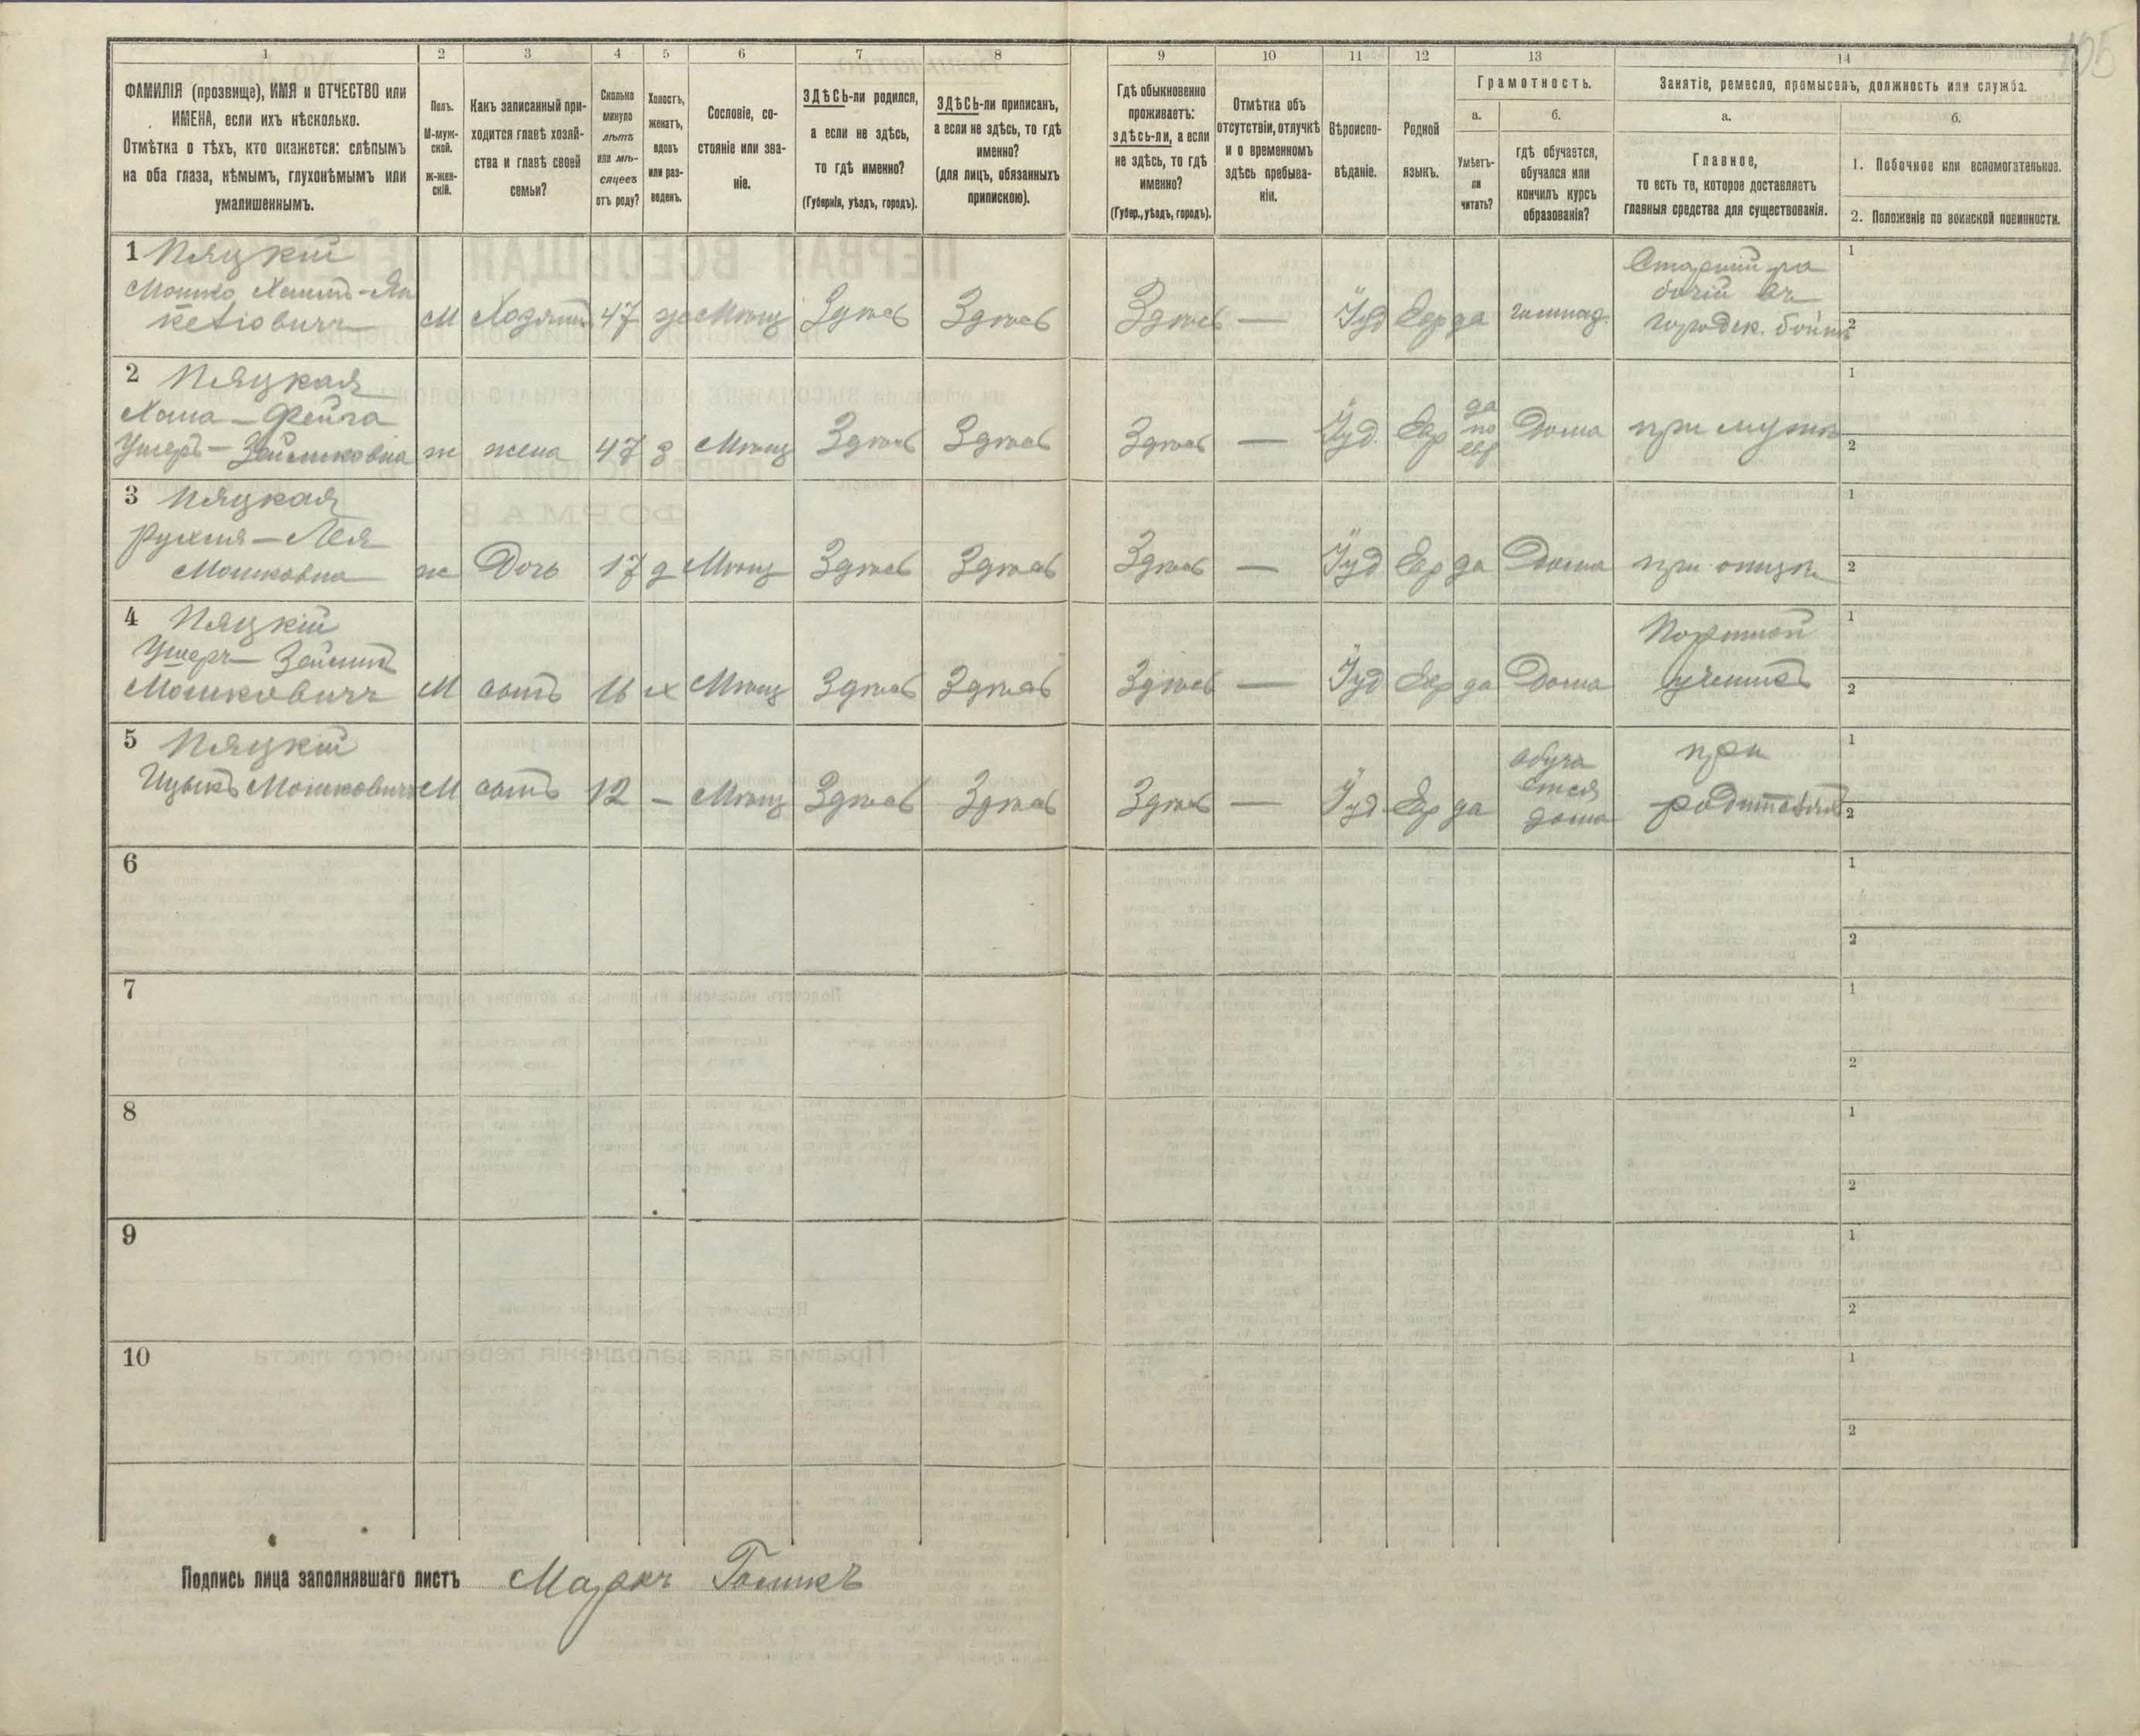 105
1 2 3 4 5 6 7 8 9 10 11 12 13 14
ФАМИЛІЯ (прозвище), ИМЯ и ОТЧЕСТВО или
ИМЕНА, если ихъ нѣсколько.
Отмѣтка о тѣхъ, кто окажется: слѣпымъ
на оба глаза, нѣмымъ, глухонѣмымъ или
умалишеннымъ.
Полъ.
М-муж-
ской.
ж-жен-
скій.
Какъ записанный при-
ходится главѣ хозяй-
ства и главѣ своей
семьи?
Сколько
минуло
лѣтъ
или мѣ-
сяцевъ
отъ роду?
Холостъ,
женатъ,
вдовъ
или раз-
веденъ.
Сословіе, со-
стояніе или зва-
ніе.
ЗДѢСЬ-ли родился,
а если не здѣсь,
то гдѣ именно?
(Губернія, уѣздъ, городъ).
ЗДѢСЬ-ли приписанъ,
а если не здѣсь, то гдѣ
именно?
(для лицъ, обязанныхъ
припискою).
Гдѣ обыкновенно
проживаетъ:
здѣсь-ли, а если
не здѣсь, то гдѣ
именно?
(Губер., уѣздъ, городъ).
Отмѣтка объ
отсутствіи, отлучкѣ
и о временномъ
здѣсь пребыва-
ніи.
Вѣроиспо-
вѣданіе.
Родной
языкъ.
Грамотность.
а.
Умѣетъ-
ли
читать?
б.
гдѣ обучается,
обучался или
кончилъ курсъ
образованія?
Занятіе, ремесло, промыселъ, должность или служба.
а.
Главное,
то есть то, которое доставляетъ
главныя средства для существованія.
б.
1. Побочное или вспомогательное.
2. Положеніе по воинской повинности.
1 Пяцкій
Мошко Хаимъ-Ян
келіовичъ М Хозяинъ 47 ж Мѣщ Здѣсь Здѣсь Здѣсь — Іуд Евр да
Старшій ра
бочій въ
городск. бойнѣ
1
2
2 Пяцкая
Хана-Фейга
Ушеръ-Зеликовна ж жена 47 з Мѣщ Здѣсь Здѣсь Здѣсь — Іуд. Евр
да
по
евр
Дома при мужѣ
1
2
3 Пяцкая
Рухля-Лея
Мошковна ж Дочь 17 д Мѣщ Здѣсь Здѣсь Здѣсь — Іуд Евр да Дома при отцѣ
1
2
4 Пяцкій
Ушеръ-Зеликъ
Мошковичъ М сынъ 16 х Мѣщ Здѣсь Здѣсь Здѣсь — Іуд Евр да Дома
Портной
ученикъ
1
2
5 Пяцкій
Ицыкъ Мошковичъ М сынъ 12 — Мѣщ Здѣсь Здѣсь Здѣсь — Іуд. Евр да
обуча
ется
дома
при
родителяхъ
1
2
6
1
2
7
1
2
8
1
2
9
1
2
10
1
2
Подпись лица заполнявшаго листъ Маркъ